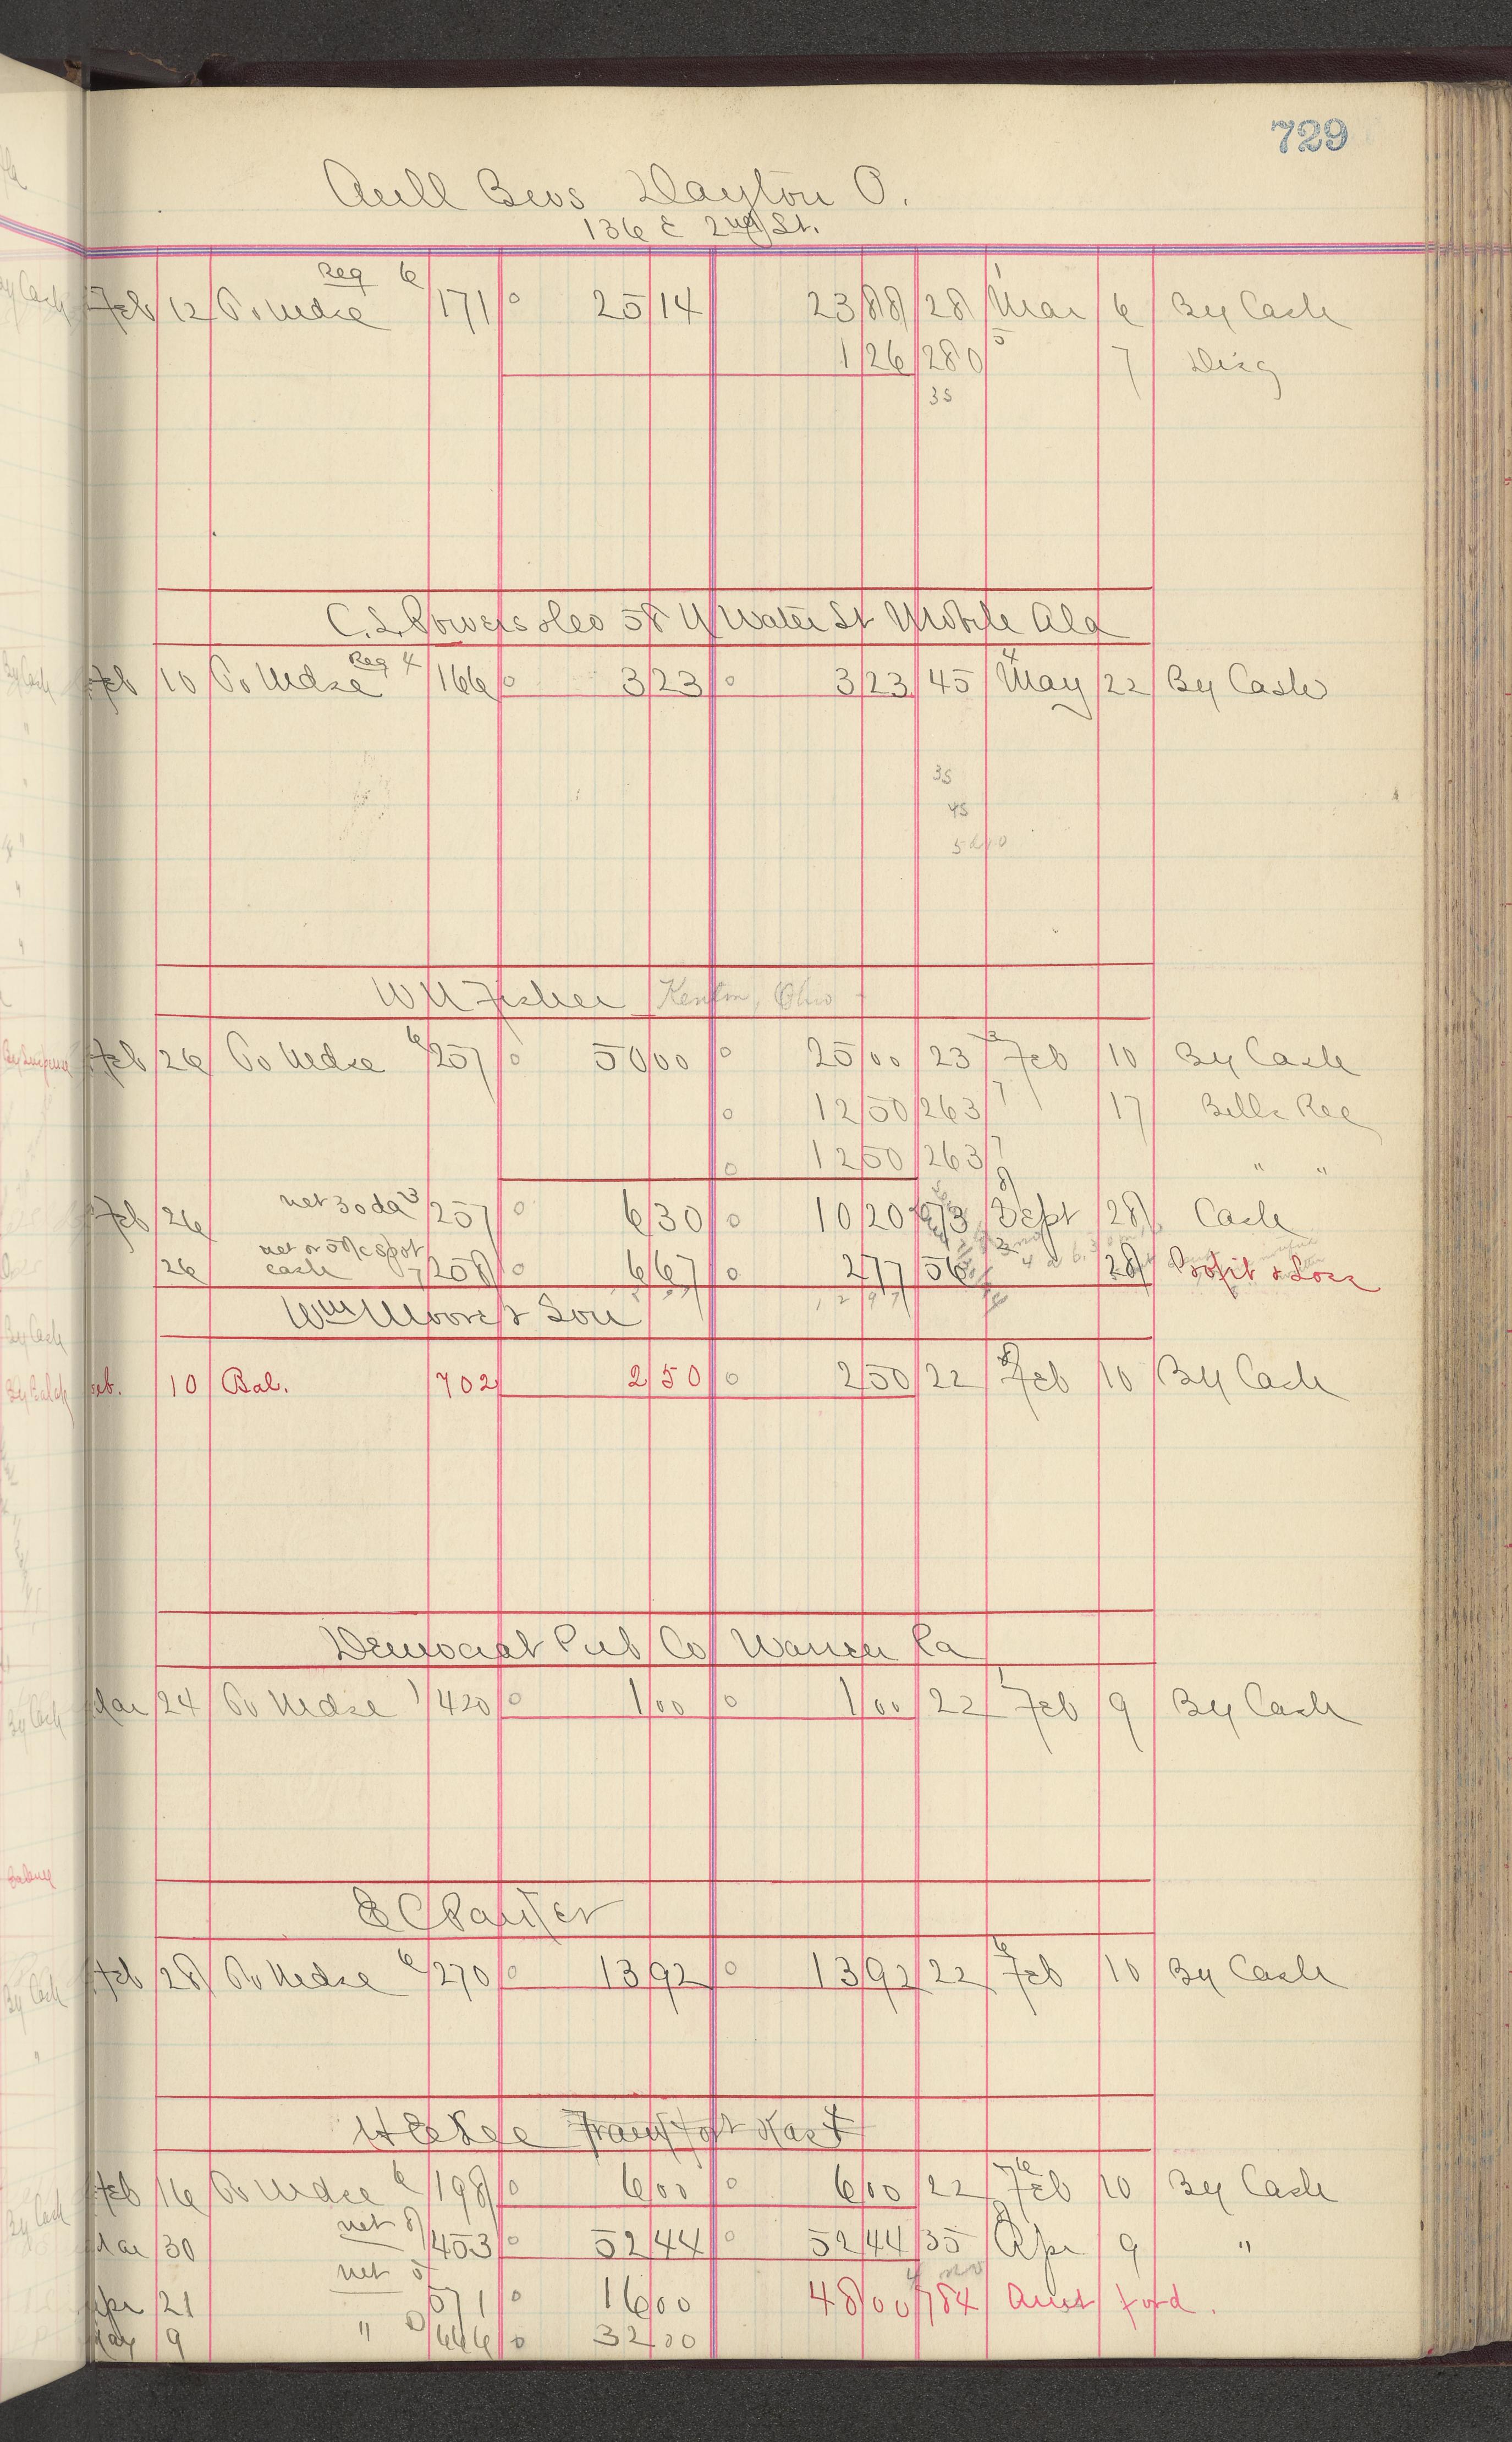 729
Aull Bros Dayton O.
136 E 2nd St.
Reg 6
Feb 12 To Mdse 171 25 14 23 88 28 Mar 6 By Cash
1 26 280 7 Disc
35
C. S. Powers 58 N Water St Mobile Ala
Reg 4
Feb 10 To Mdse 166 3 23 3 23 45 May 22 By Cash
35
45
W H Fisher Kenton, Ohio
Feb 26 To Mdse 6 257 50 00 25 00 23 Feb 10 By Cash
12 50 263 17 Bills Rec
12 50 263 " "
Feb 26 net 30 da 3 257 6 30 10 20 Sept 28 Cash
net or 5% spot
26 cash 7 258 6 67 2 77 56 28 Profit & Loss
Wm Moore & Son
Feb. 10 Bal. 702 2 50 2 50 22 Feb 10 By Cash
Democrat Pub Co Warren Pa
Mar 24 To Mdse 1 420 1 00 1 00 22 Feb 9 By Cash
E C Panter
Feb 28 To Mdse 6 270 13 92 13 92 22 Feb 10 By Cash
H E Lee
Feb 16 To Mdse 6 198 6 00 6 00 22 Feb 10 By Cash
Mar 30 net 8 453 52 44 52 44 35 Apr 9 "
Apr 21 net 5 571 16 00 48 00 784 Amt ford.
May 9 " 666 32 00